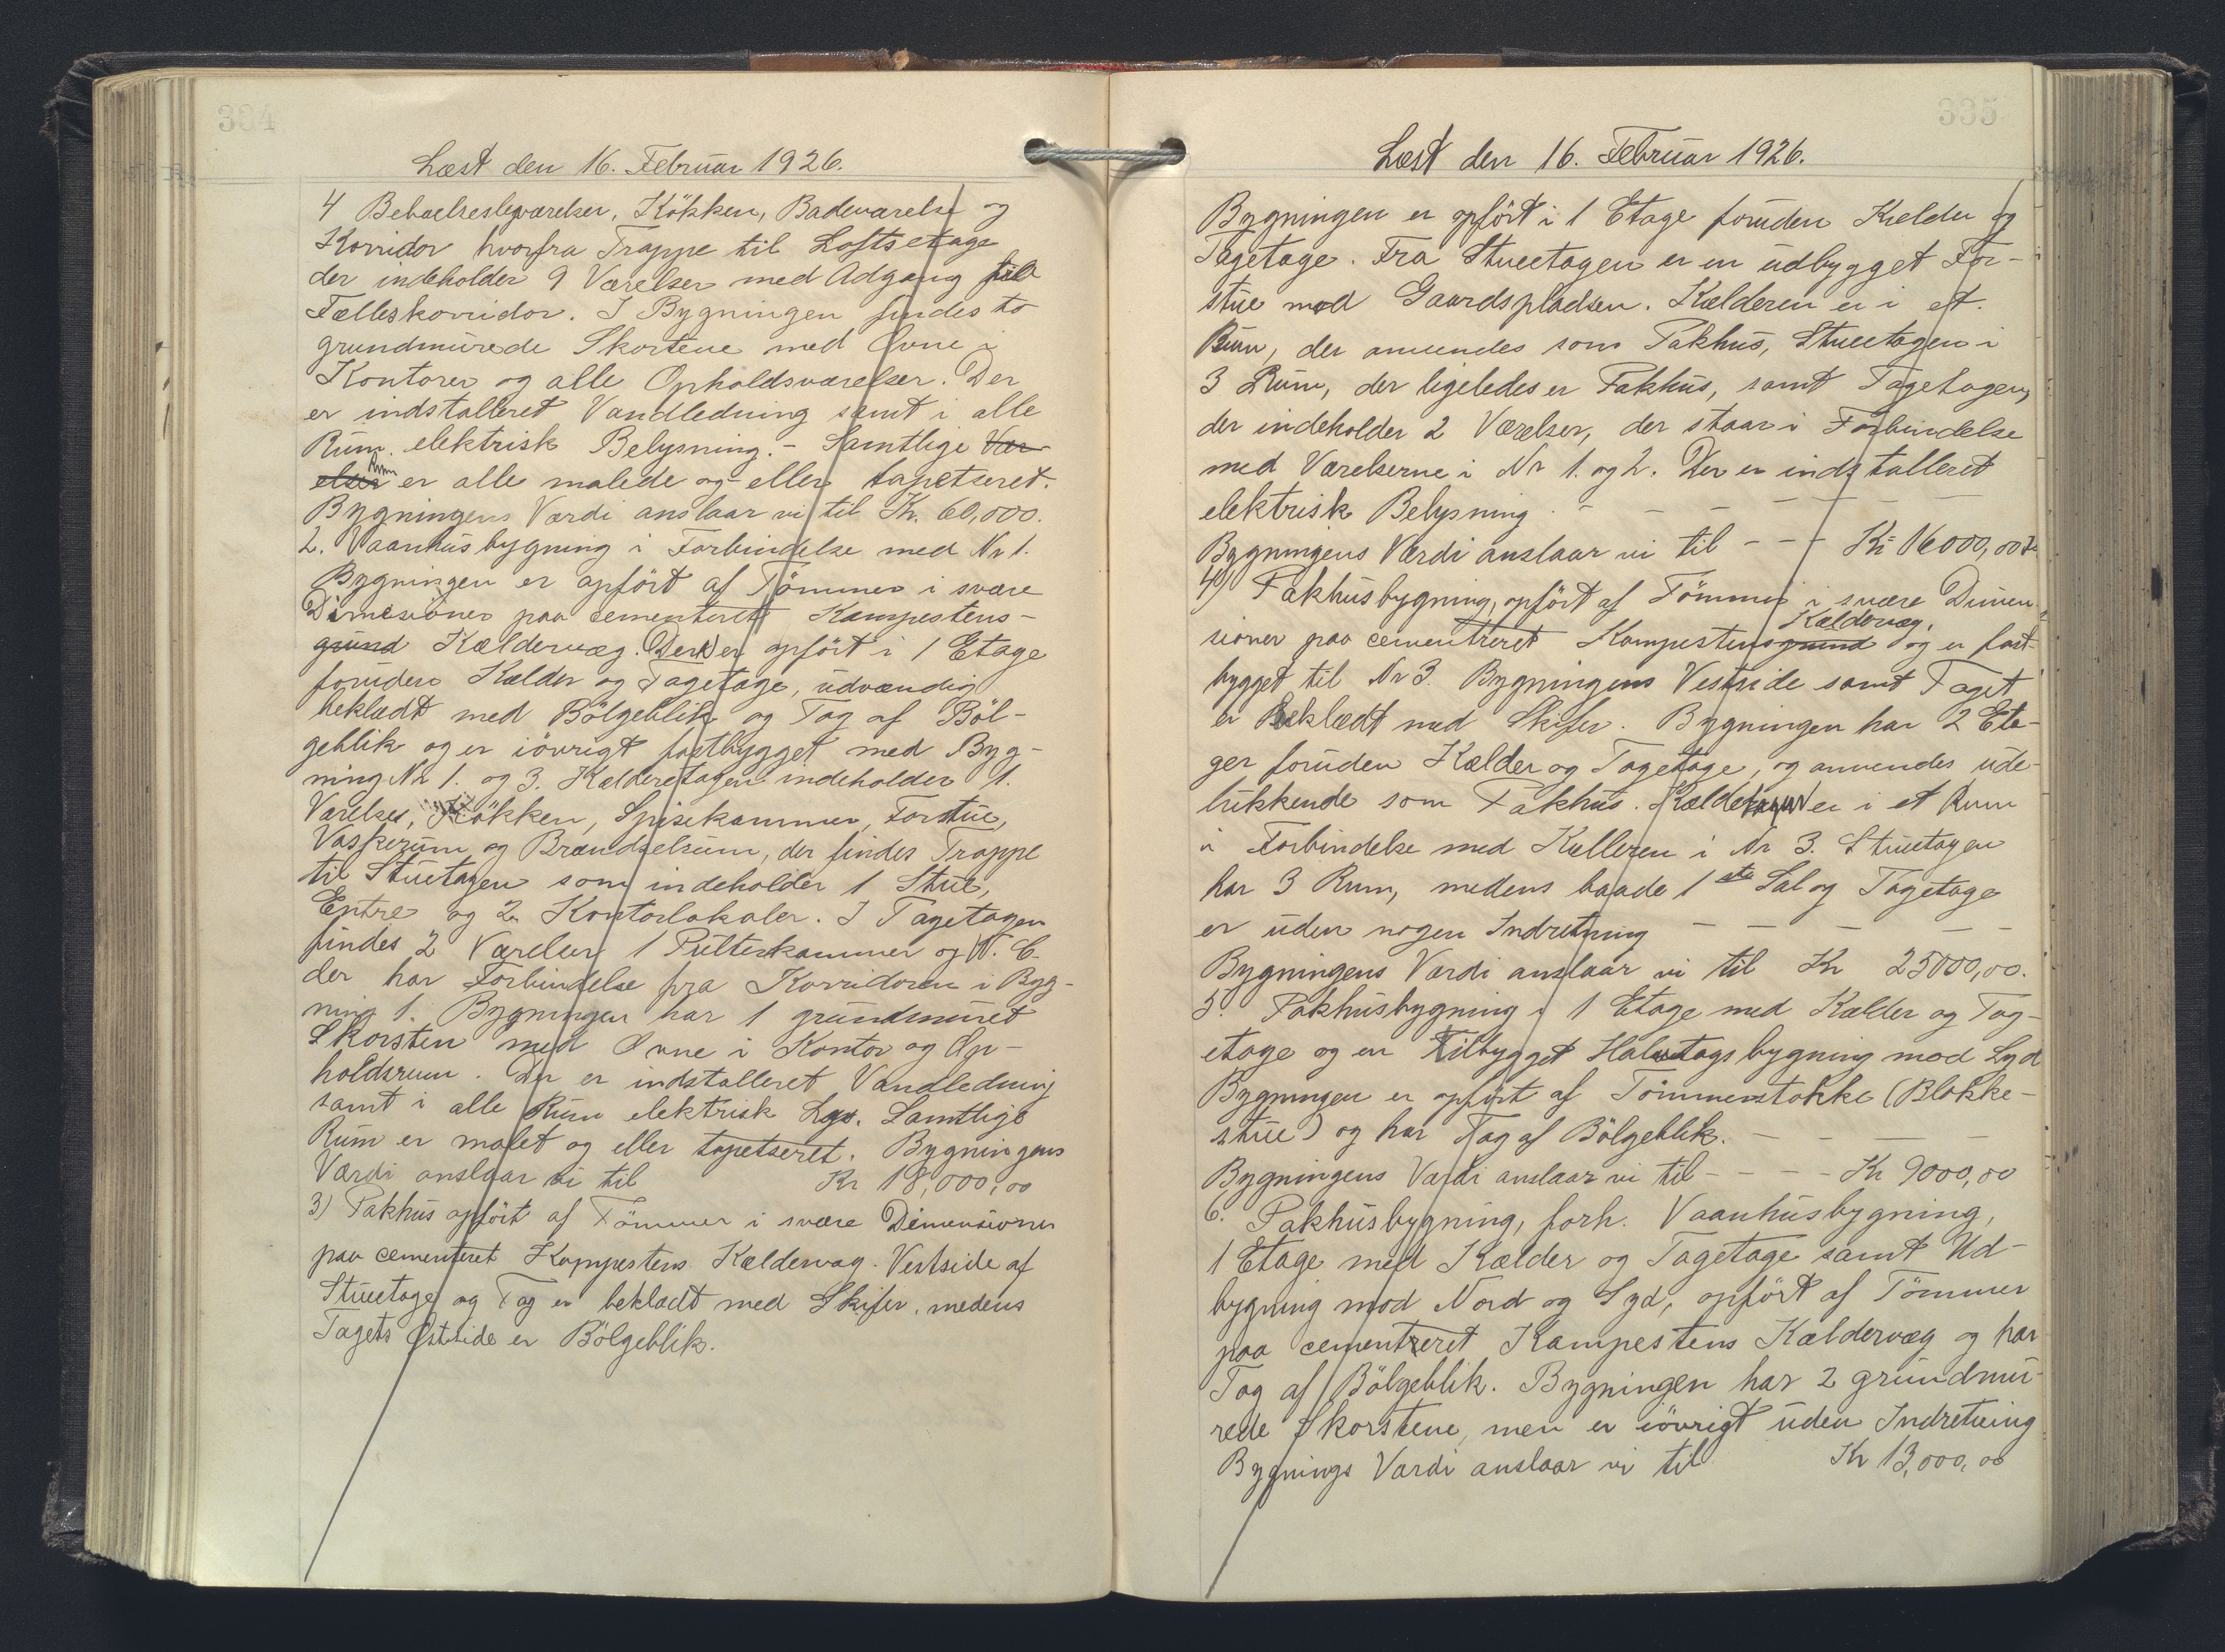 334
Læst den 16. Februar 1926.
4 Beboelsesleværelser, Kökken, Badeværelse og
Korridor hvorfra Trappe til Loftsetage
der indeholder 9 Værelser med Adgang til
Fælleskorridor. I Bygningen findes to
grundmurede Skorstene med Ovne i
Kontorer og alle Opholdsværelser. Der
er indstalleret Vandledning samt i alle
Rum. elektrisk Belysning. - Samtlige Vær-
elser Rum er alle malede og eller tapetseret.
Bygningens Værdi anslaar vi til Kr. 60,000.
2. Vaanhusbygning i Forbindelse med Nr 1.
Bygningen er opfört af Tömmer i svære
Dimesioner paa cementeret Kampestens-
grund Kældervæg. Den er opfört i 1 Etage
foruden Kælder og Tagetage, udvændig
beklædt med Bölgeblik og Tag af Böl-
geblik og er iövrigt fastbygget med Byg-
ning Nr 1. og 3. Kælderetagen indeholder 1.
Værelse, Kökken, Spisekammer, Forstue,
Vaskerum og Brændselsrum, der findes Trappe
til Stuetagen som indeholder 1 Stue,
Entre og 2 Kontorlokaler. I Tagetagen
findes 2 Værelser 1 Pulterkammer og W.C.
der har Forbindelse fra Korridoren i Byg-
ning 1. Bygningen har 1 grundmuret
Skorsten med Ovne i Kontor og Op-
holdsrum. Der er indstalleret Vandledning
samt i alle Rum elektrisk Lys. Samtlige
Rum er malet og eller tapetseret. Bygningens
Værdi anslaar vi til Kr 18,000,00
3) Pakhus opfört af Tömmer i svære Dimensioner
paa cementeret Kappestens Kældervæg. Vestside af
Stuetage og Tag er beklædt med Skifer, medens
Tagets Østside er Bölgeblik.
335
Læst den 16. Februar 1926.
Bygningen er opfört i 1 Etage foruden Kælder og
Tagetage. Fra Stueetagen er en udbygget For-
stue mod Gaardspladsen. Kælderen er i et
Rum, der anvendes som Pakhus, Stueetagen i
3 Rum, der ligeledes er Pakhus, samt Tagetagen,
der indeholder 2 Værelser, der staar i Forbindelse
med Værelserne i Nr 1. og 2. Der er indstalleret
elektrisk Belysning - - - - - -
Bygningens Værdi anslaar vi til - - - Kr 16000,00
4) Pakhusbygning, opfört af Tömmer i svære Dimen-
sioner paa cementeret Kampestensgrund Kældervæg, og er fast-
bygget til Nr 3. Bygningens Vestside samt Taget
er Beklædt med Skifer. Bygningen har 2 Eta-
ger foruden Kælder og Tagetage, og anvendes ude-
lukkende som Pakhus. Kælderen er i et Rum
i Forbindelse med Kelleren i Nr 3. Stuetagen
har 3 Rum, medens baade 1ste Sal og Tagetage
er uden nogen Indretning - - - - -
Bygningens Værdi anslaar vi til Kr 25000,00.
5. Pakhusbygning i 1 Etage med Kælder og Tag-
etage og en Tilbygget Halvtagsbygning mod Syd
Bygningen er opfört af Tömmerstokke (Blokke-
stue) og har Tag af Bölgeblik. - - - -
Bygningens Værdi anslaar vi til - - - - Kr 9000,00
6. Pakhusbygning, forh. Vaanhusbygning,
1 Etage med Kælder og Tagetage samt Ud-
bygning mod Nord og Syd, opfört af Tömmer
paa cementeret Kampestens Kældervæg og har
Tag af Bölgeblik. Bygningen har 2 grundmu-
rede Skorstene, men er iövrigt uden Indretning
Bygnings Værdi anslaar vi til Kr 13,000,00